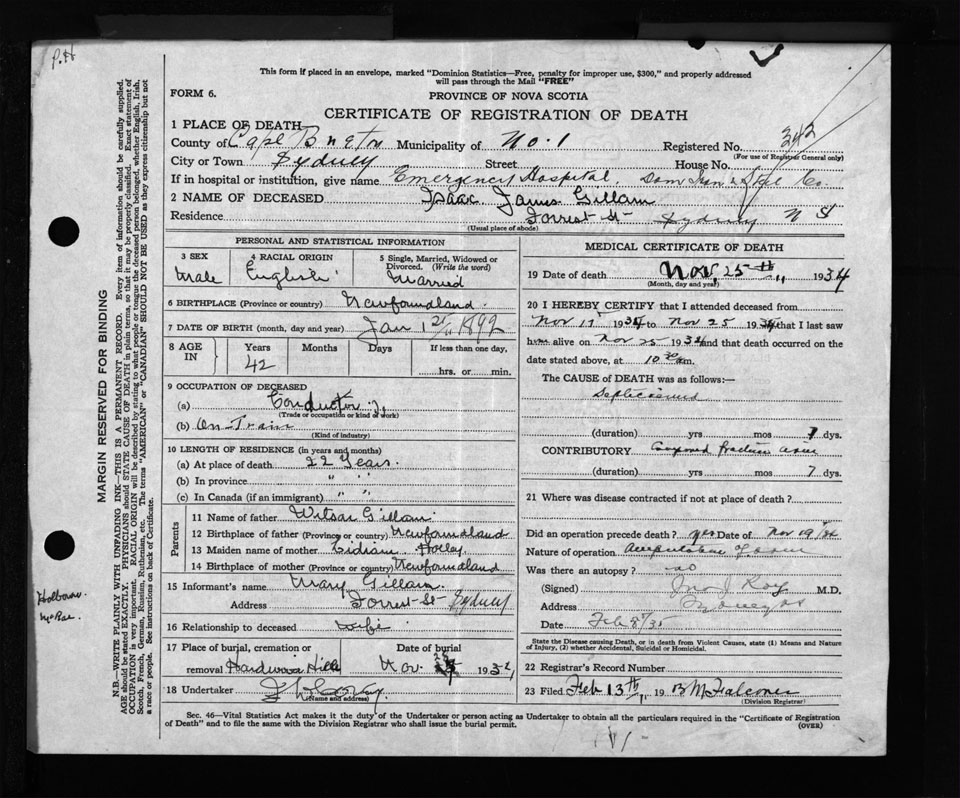 P.H
This form if placed in an envelope, marked "Dominion Statistics—Free, penalty for improper use, $300," and properly addressed
will pass through the Mail "FREE"
FORM 6.
PROVINCE OF NOVA SCOTIA
CERTIFICATE OF REGISTRATION OF DEATH
1 PLACE OF DEATH—
County of Cape Breton Municipality of No. 1 Registered No. 342
(For use of Registrar General only)
City or Town Sydney Street House No.
If in hospital or institution, give name Emergency Hospital, Dom Iron & Steel Co.
2 NAME OF DECEASED Isaac James Gillam
Residence Forrest St Sydney N S
(Usual place of abode)
PERSONAL AND STATISTICAL INFORMATION
3 SEX 4 RACIAL ORIGIN 5 Single, Married, Widowed or Divorced. (Write the word)
Male English Married
6 BIRTHPLACE (Province or country) Newfoundland
7 DATE OF BIRTH (month, day and year) Jan 1st 1892
8 AGE IN Years Months Days If less than one day,
42 hrs. or min.
9 OCCUPATION OF DECEASED
(a) Conductor
(Trade or occupation or kind of work)
(b) On Train
(Kind of industry)
10 LENGTH OF RESIDENCE (in years and months)
(a) At place of death 22 Years.
(b) In province " "
(c) In Canada (if an immigrant) " "
Parents
11 Name of father Gillam
12 Birthplace of father (Province or country) Newfoundland
13 Maiden name of mother Holley
14 Birthplace of mother (Province or country) Newfoundland
15 Informant's name Mary Gillam
Address Forrest St Sydney
16 Relationship to deceased wife
17 Place of burial, cremation or Date of burial
removal Hardwood Hill Nov. 193
18 Undertaker
(Name and address)
MEDICAL CERTIFICATE OF DEATH
19 Date of death Nov, 25th, 1934
(Month, day and year)
20 I HEREBY CERTIFY that I attended deceased from
Nov 1934 to Nov 25 1934 that I last saw
him alive on Nov 25 1934 and that death occurred on the
date stated above, at 10 30 am.
The CAUSE of DEATH was as follows:—
Septicaemia
(duration) yrs mos 7 dys.
CONTRIBUTORY Compound fracture
(duration) yrs mos 7 dys.
21 Where was disease contracted if not at place of death?
Did an operation precede death? yes Date of Nov 19/34
Nature of operation Amputation of arm
Was there an autopsy? no
(Signed) Jno J Roy M.D,
Address Sydney NS
Date Feb 8/35
State the Disease causing Death, or in death from Violent Causes, state (1) Means and Nature of Injury, (2) whether Accidental, Suicidal or Homicidal.
22 Registrar's Record Number
23 Filed Feb 13th, 19 B M Falconer
(Division Registrar)
Sec. 46—Vital Statistics Act makes it the duty of the Undertaker or person acting as Undertaker to obtain all the particulars required in the "Certificate of Registration
of Death" and to file the same with the Division Registrar who shall issue the burial permit.
(OVER)
MARGIN RESERVED FOR BINDING
N.B.—WRITE PLAINLY WITH UNFADING INK—THIS IS A PERMANENT RECORD. Every item of information should be carefully supplied.
AGE should be stated EXACTLY. PHYSICIANS should STATE CAUSE OF DEATH in plain terms, so that it may be properly classified. Exact statement of
OCCUPATION is very important. RACIAL ORIGIN will be described by stating to what people or tongue the deceased person belonged, whether English, Irish,
Scotch, French, German, Russian, Ruthenian, etc. The terms "AMERICAN" or "CANADIAN" SHOULD NOT BE USED as they express citizenship but not
a race or people. See instructions on back of Certificate.
McRae